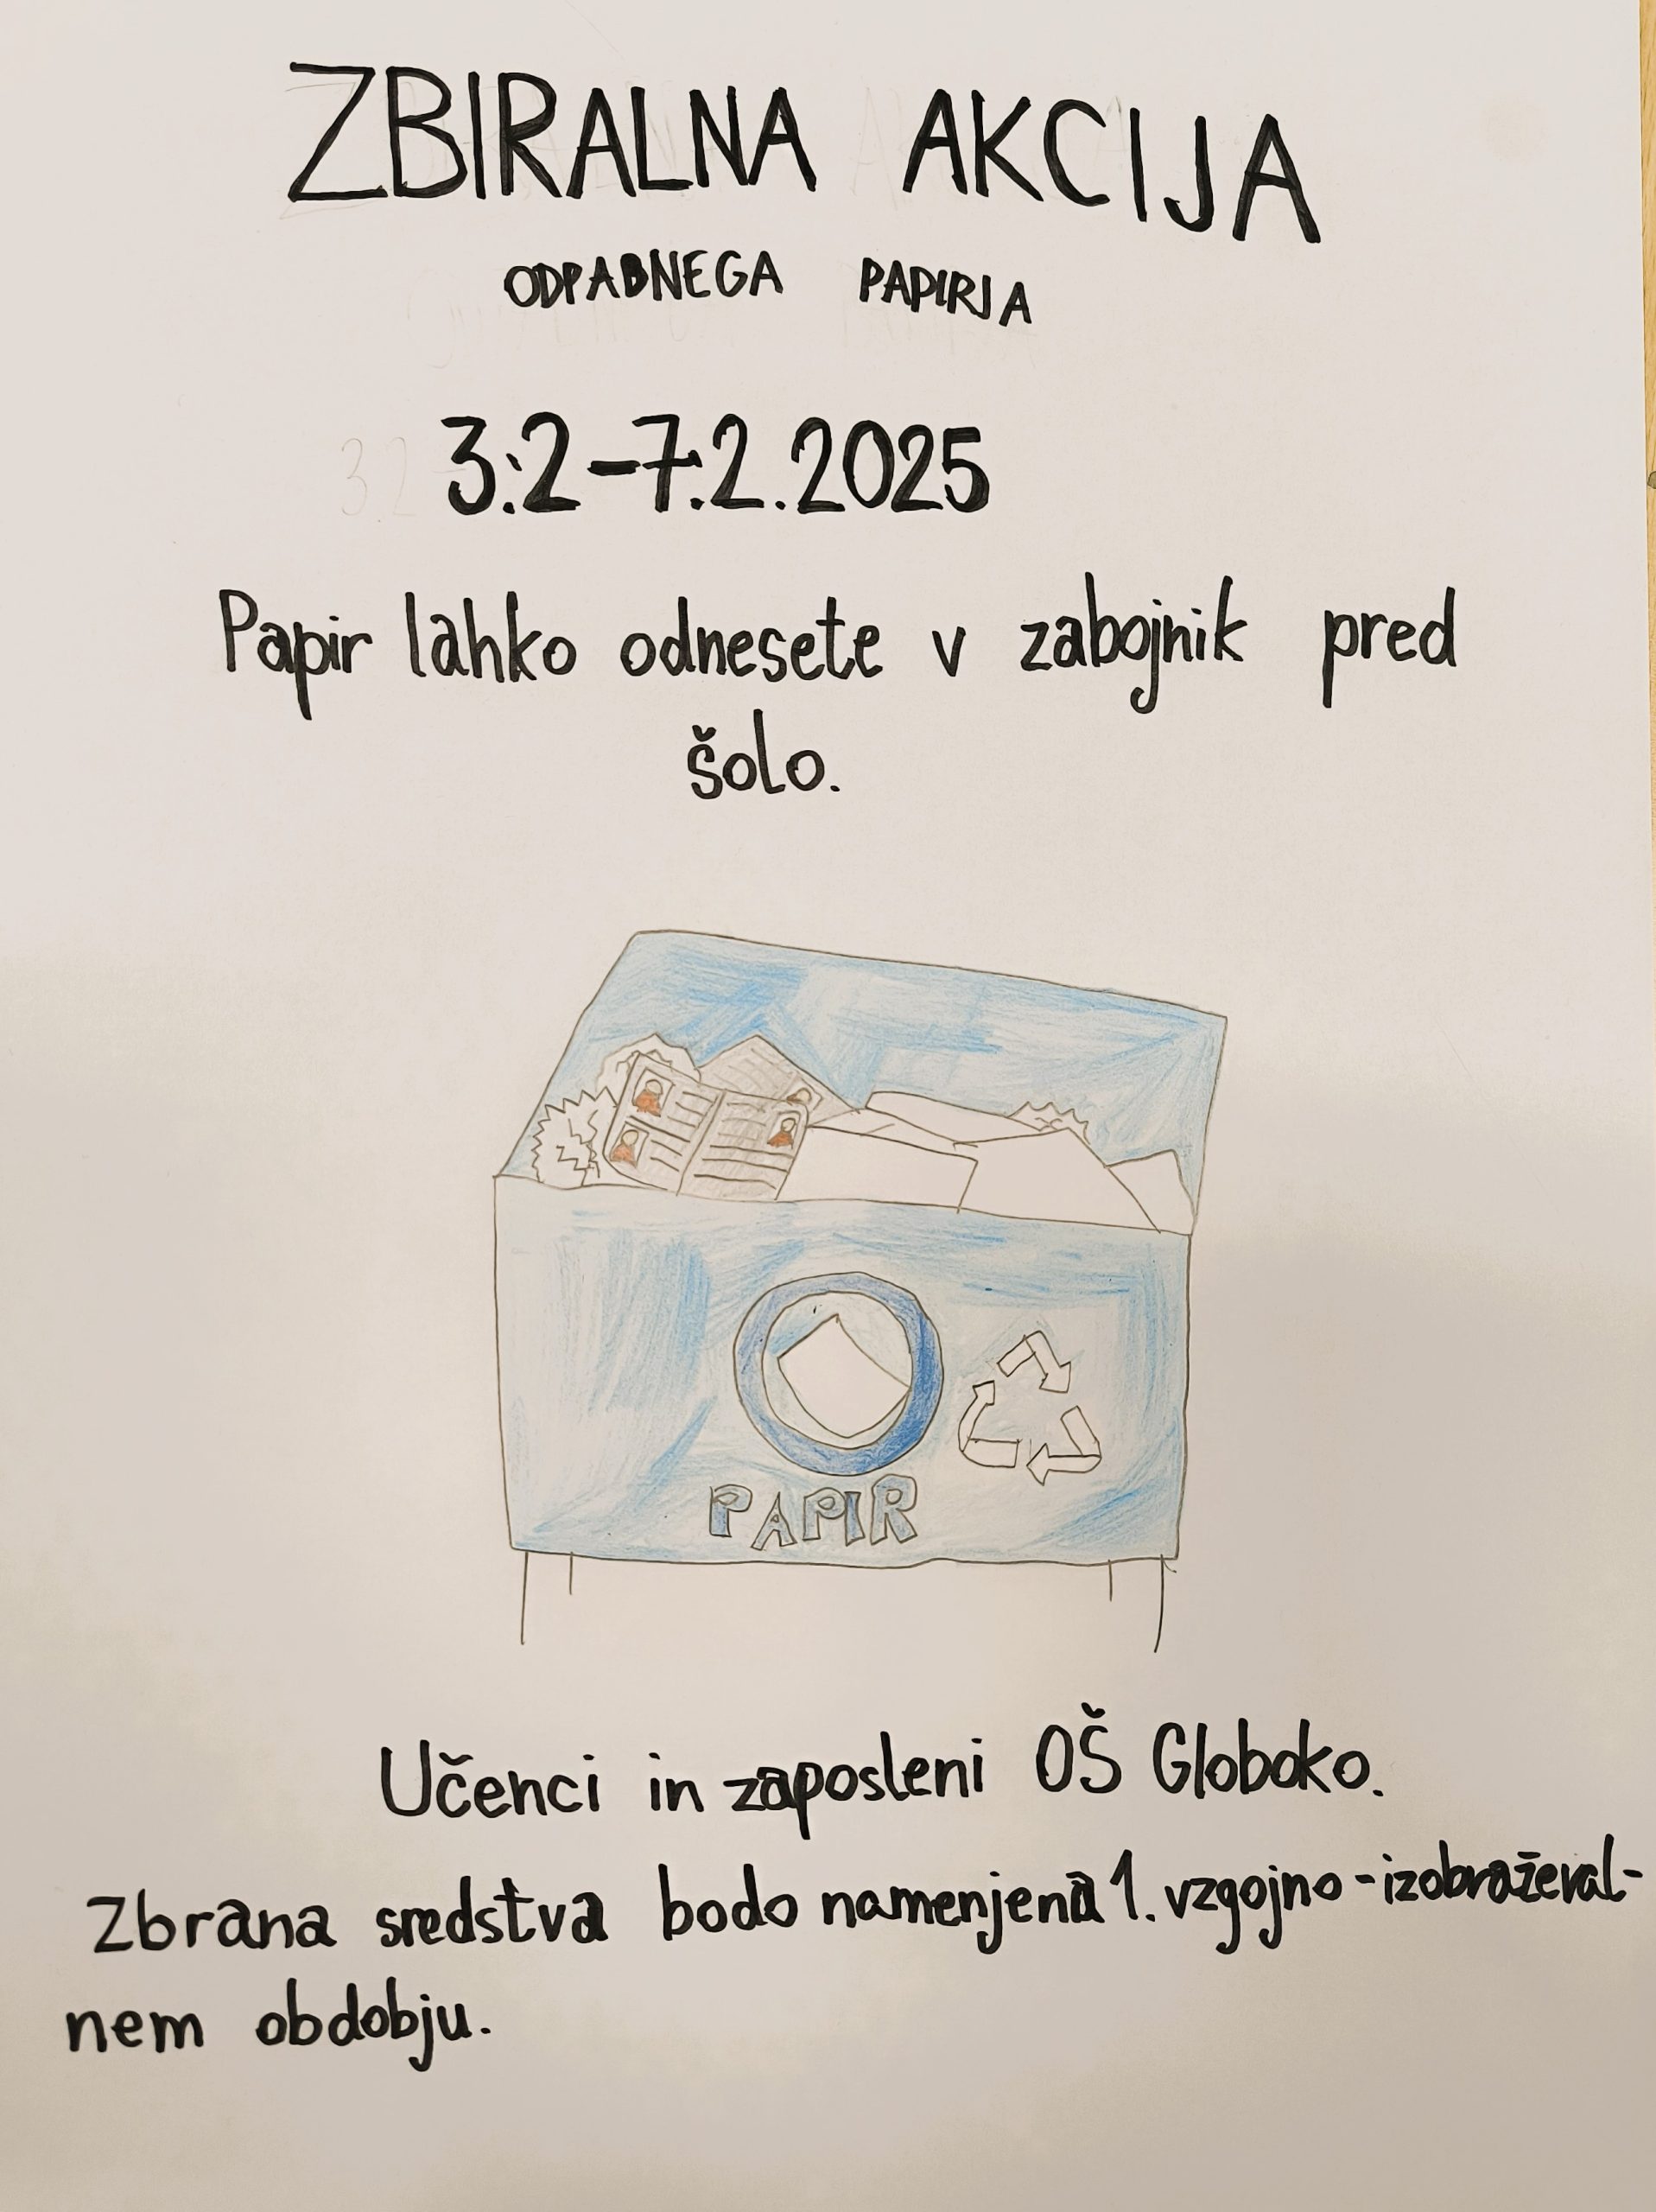 ZBIRALNA AKCIJA
ODPADNEGA PAPIRJA
3.2-7.2.2025
Papir lahko odnesete v zabojnik pred
šolo.
PAPIR
Učenci in zaposleni OŠ Globoko.
Zbrana sredstva bodo namenjena 1. vzgojno-izobraževal-
nem obdobju.